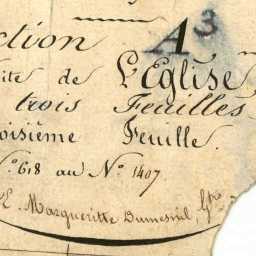 ction A 3
ite de L'Eglise
trois Feuilles
oisième Feuille.
N.° 618 au N.° 1407.
E. Margueritte Dumesnil,